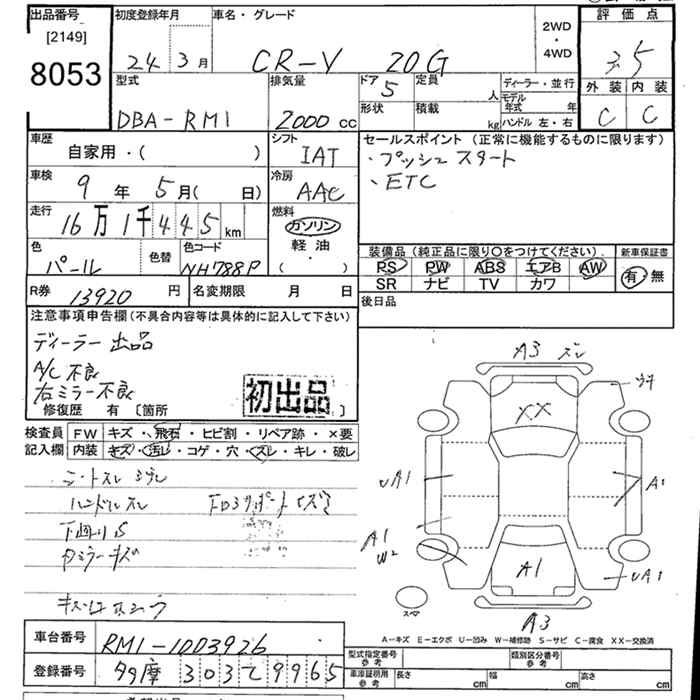 出品番号
[2149]
8053
初度登録年月
24 3月
車名・グレード
CR-V 20G
2WD
・
4WD
評価点
3.5
外装 内装
C C
型式
DBA-RM1
排気量
2000 cc
ドア
5
定員
人
形状
積載
kg
ディーラー・並行
モデル年式 年
ハンドル 左・右
車歴
自家用・( )
シフト
IAT
セールスポイント (正常に機能するものに限ります)
・プッシュスタート
・ETC
車検
9年 5月( 日)
冷房
AAC
走行
16万1千445km
燃料
ガソリン
軽油
(・)
色
パール
色替
色コード
NH788P
装備品 (純正品に限り○をつけてください)
PS PW ABS エアB AW
SR ナビ TV カワ
新車保証書
有 無
R券
13920円
名変期限 月 日
後日品
注意事項申告欄 (不具合内容等は具体的に記入して下さい)
ディーラー出品
A/C不良
右ミラー不良
初出品
修復歴 有 〔箇所 〕
検査員記入欄
FW キズ・飛石・ヒビ割・リペア跡・×要
内装 キズ・汚レ・コゲ・穴・スレ・キレ・破レ
シートスレ
ハンドルスレ
下廻りS
ミラーキズ
A3 スレ
XX
UA1
A1
A1
W2
A1
UA1
スペア
A3
A-キズ E-エクボ U-凹み W-補修跡 S-サビ C-腐食 XX-交換済
車台番号
RM1-1003926
登録番号
多摩 303 て 9965
型式指定番号
参考
類別区分番号
参考
車庫証明用
参考
長さ cm 幅 cm 高さ cm